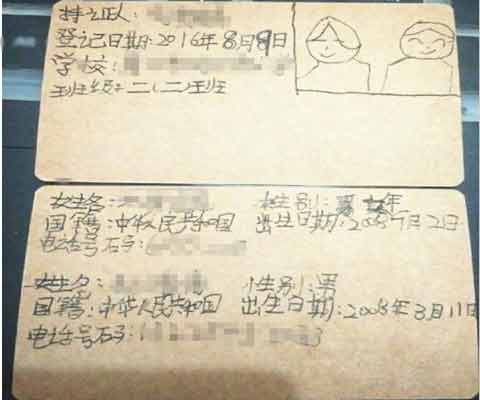 持证人:
登记日期:2016年8月9日
学校:
班级:二(二)班
姓名: 性别:女
国籍:中华人民共和国 出生日期:2008年7月2日
电话号码:
姓名: 性别:男
国籍:中华人民共和国 出生日期:2008年3月11日
电话号码:1